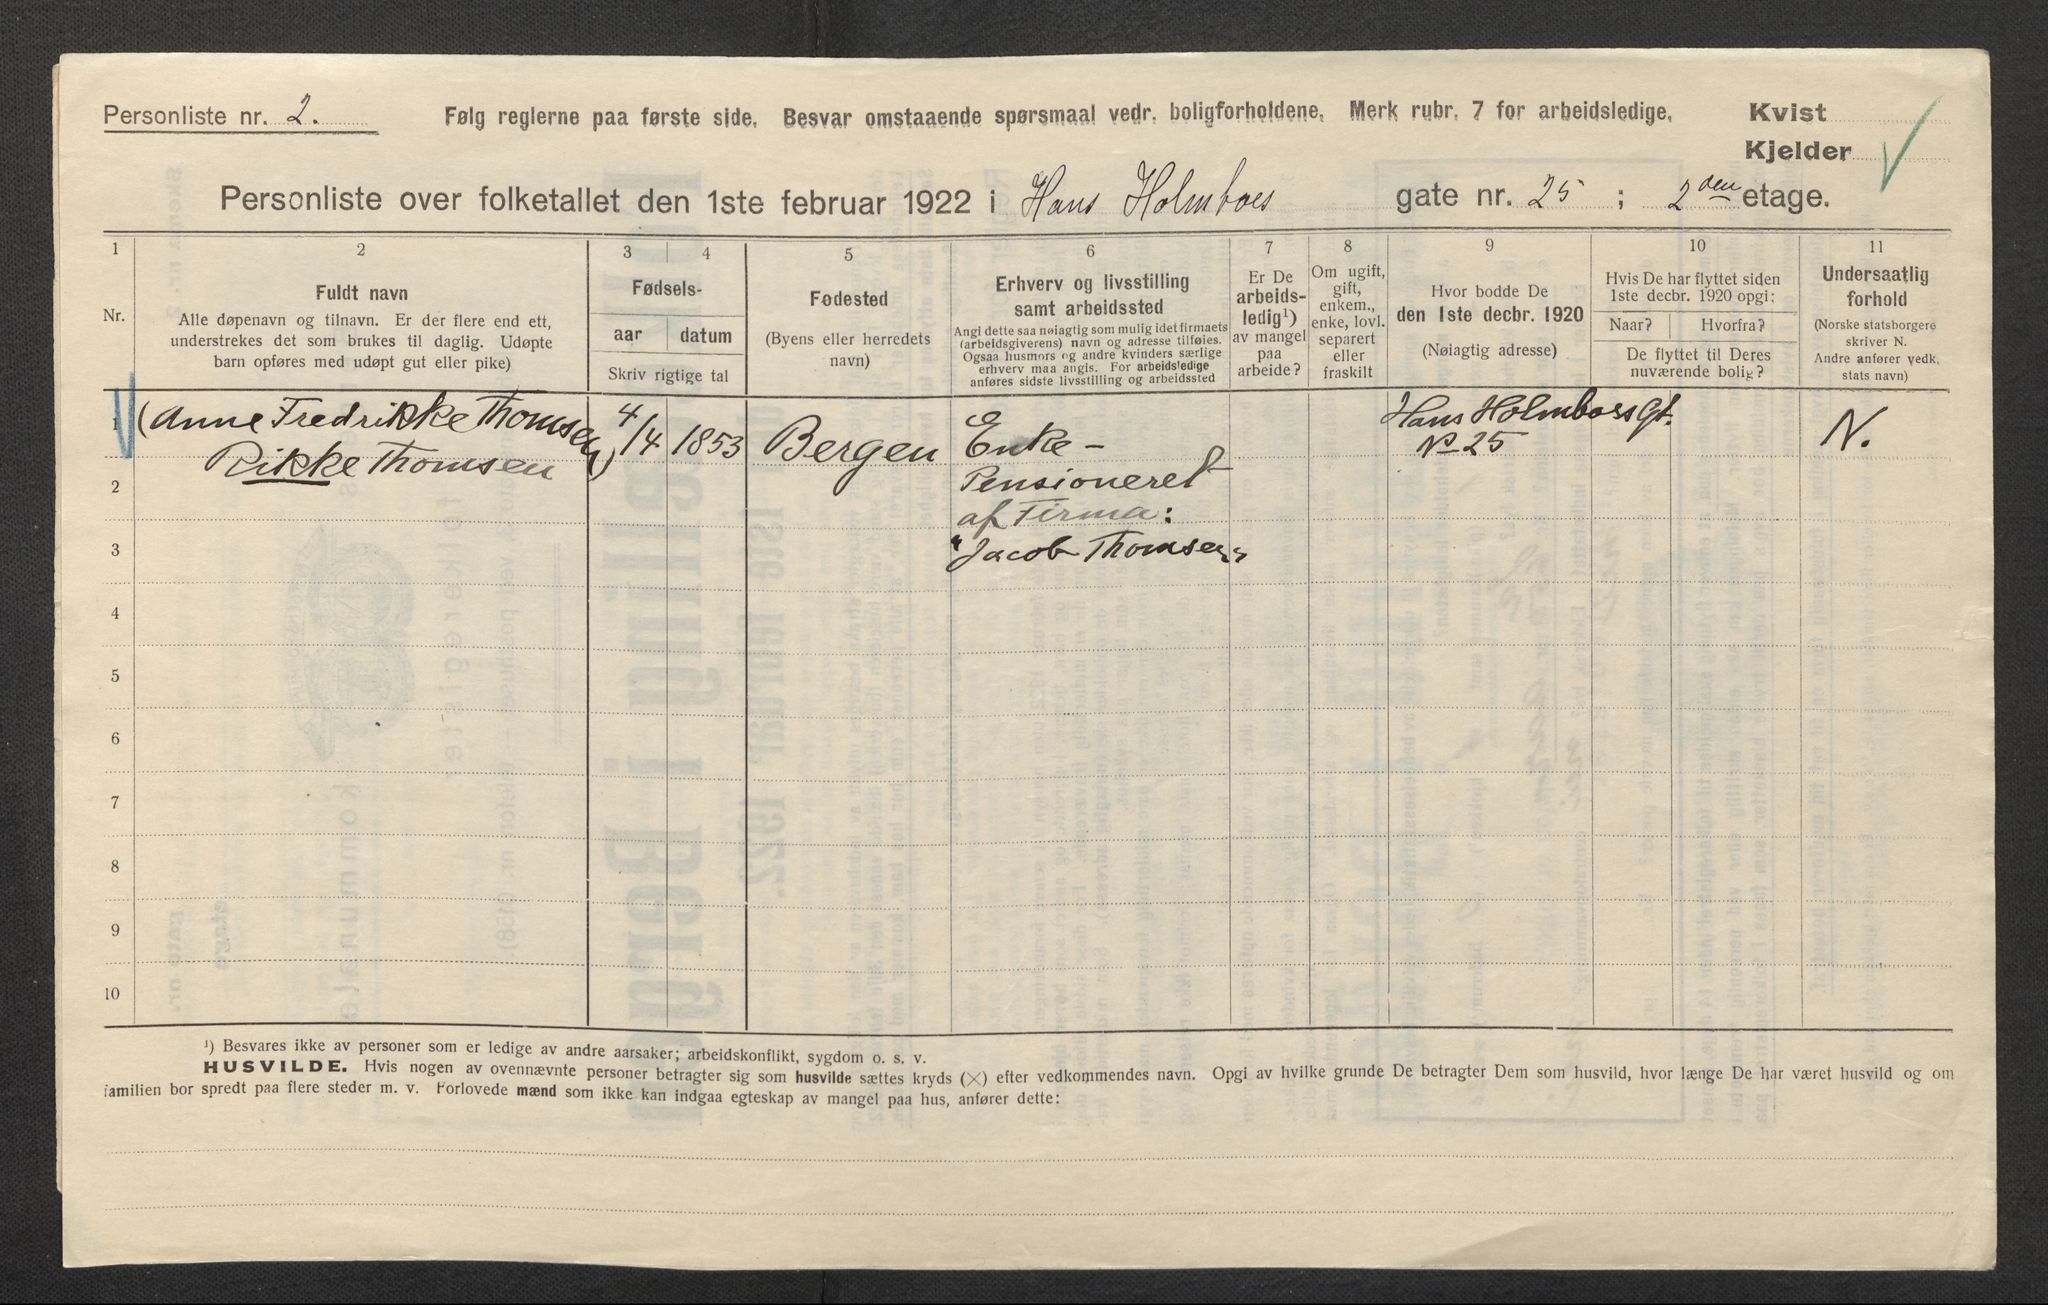 Personliste nr. 2. Følg reglerne paa første side. Besvar omstaaende spørsmaal vedr. boligforholdene. Merk rubr. 7 for arbeidsledige. Kvist
Kjelder
Personliste over folketallet den 1ste februar 1922 i Hans Holmboes gate nr. 25 ; 2den etage.
1 2 3 4 5 6 7 8 9 10 11
Nr.
Fuldt navn
Alle døpenavn og tilnavn. Er der flere end ett,
understrekes det som brukes til daglig. Udøpte
barn opføres med udøpt gut eller pike)
Fødsels-
aar datum
Skriv rigtige tal
Fødested
(Byens eller herredets
navn)
Erhverv og livsstilling
samt arbeidssted
Angi dette saa nøiagtig som mulig idet firmaets
(arbeidsgiverens) navn og adresse tilføies.
Ogsaa husmors og andre kvinders særlige
erhverv maa angis. For arbeidsledige
anføres sidste livsstilling og arbeidssted
Er De
arbeids-
ledig¹)
av mangel
paa
arbeide?
Om ugift,
gift,
enkem.,
enke, lovl.
separert
eller
fraskilt
Hvor bodde De
den 1ste decbr. 1920
(Nøiagtig adresse)
Hvis De har flyttet siden
1ste decbr. 1920 opgi:
Naar? Hvorfra?
De flyttet til Deres
nuværende bolig?
Undersaatlig
forhold
(Norske statsborgere
skriver N.
Andre anfører vedk.
stats navn)
1 (Anne Fredrikke Thomsen) 4/4 1853 Bergen Enke - Hans Holmboesgt. N.
Rikke Thomsen No 25
2 Pensioneret
af Firma:
3 "Jacob Thomsen"
4
5
6
7
8
9
10
¹) Besvares ikke av personer som er ledige av andre aarsaker; arbeidskonflikt, sygdom o. s. v.
HUSVILDE. Hvis nogen av ovennævnte personer betragter sig som husvilde sættes kryds (×) efter vedkommendes navn. Opgi av hvilke grunde De betragter Dem som husvild, hvor længe De har været husvild og om
familien bor spredt paa flere steder m. v. Forlovede mænd som ikke kan indgaa egteskap av mangel paa hus, anfører dette: